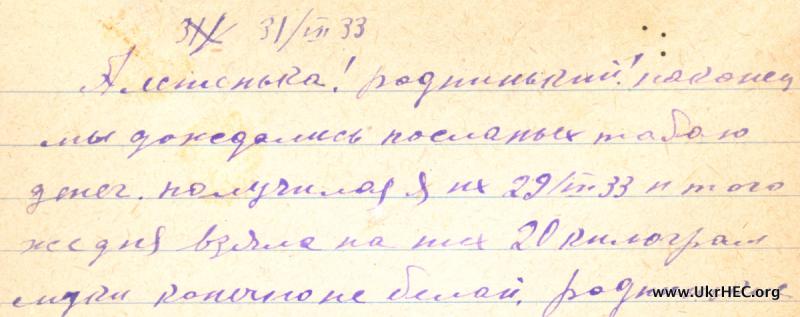 31/III 33
Алешенька! роднинький! наконец
мы дождались посланых табою
денег. получила я их 29/III 33 и того
же дня взяла на них 20 килограм
муки конечно не белай,
www.UkrHEC.org